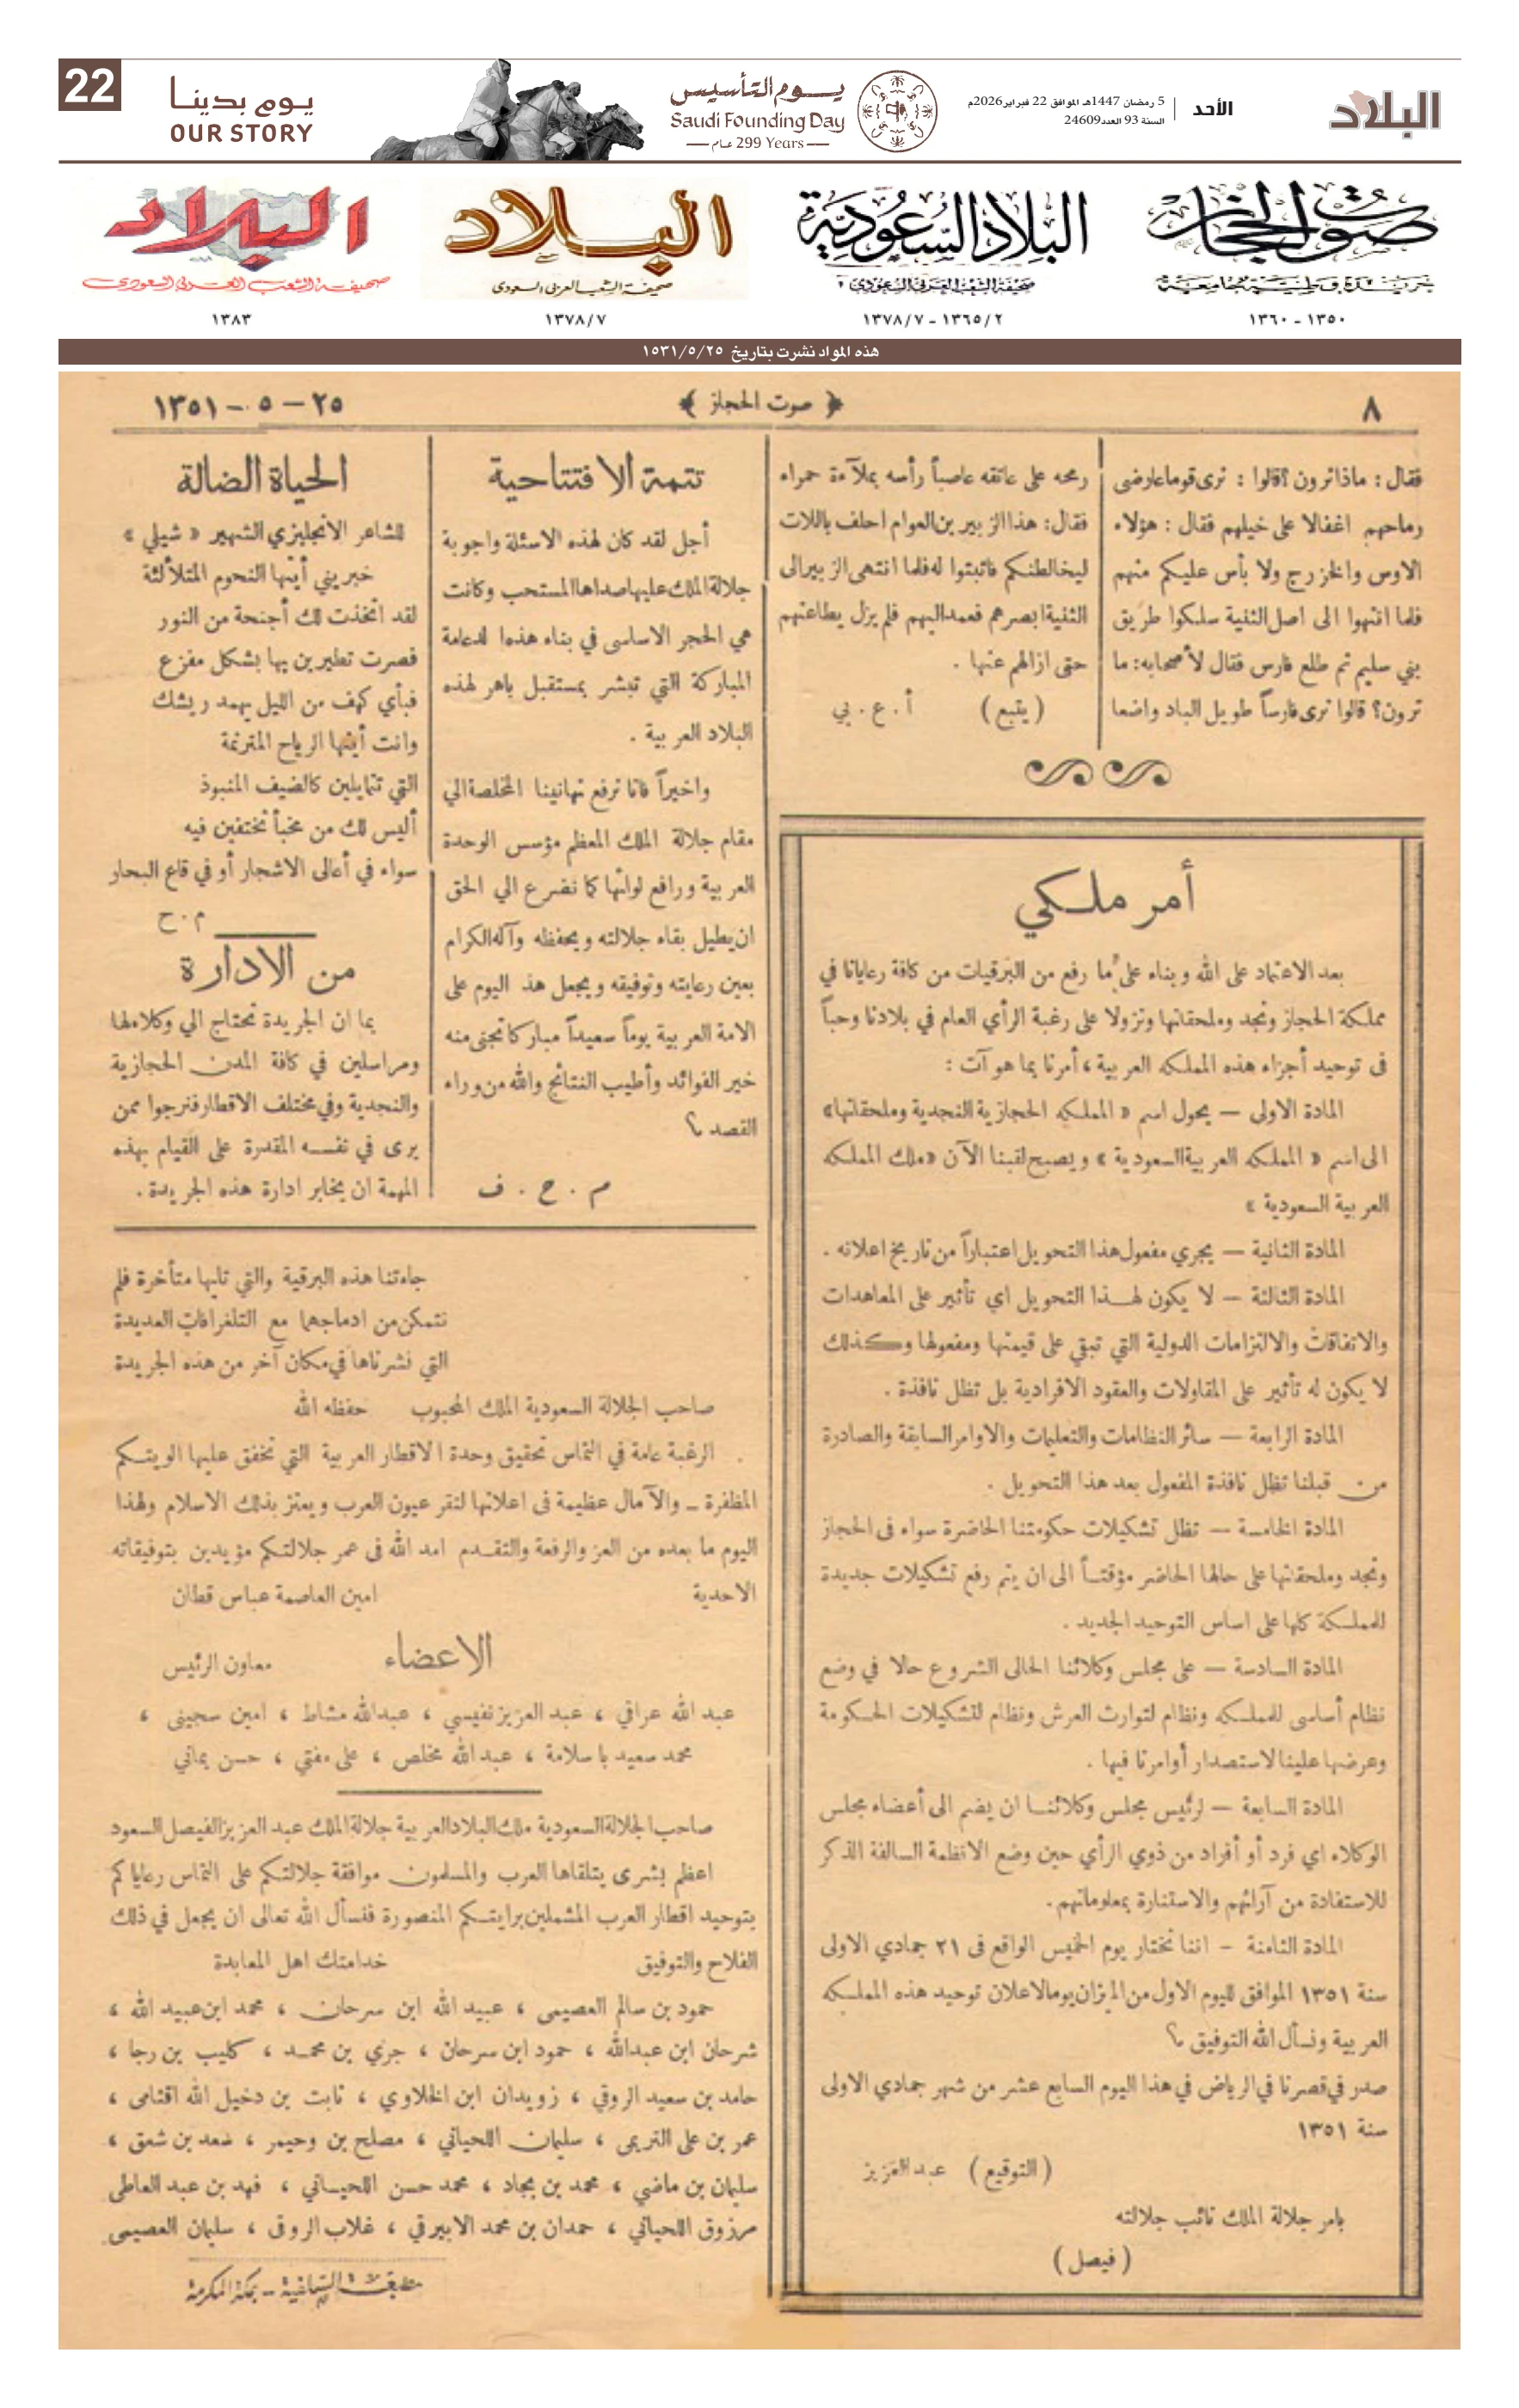 البلاد
الأحد
5 رمضان 1447هـ الموافق 22 فبراير2026م
السنة 93 العدد24609
يوم التأسيس
Saudi Founding Day
299 Years عام
يوم بدينا
OUR STORY
22
صوت الحجاز
جريدة وطنية جامعة
١٣٥٠ - ١٣٦٠
البلاد السعودية
صحيفة الشعب العربي السعودي
١٣٦٥/٢ - ١٣٧٨/٧
البلاد
صحيفة الشعب العربي السعودي
١٣٧٨/٧
البلاد
صحيفة الشعب العربي السعودي
١٣٨٣
هذه المواد نشرت بتاريخ ١٥٣١/٥/٢٥
٨
﴿ صوت الحجاز ﴾
٢٥ - ٥ - ١٣٥١
فقال : ماذا ترون ؟ قالوا : نرى قوما عارضى
رماحهم اغفالا على خيلهم فقال : هؤلاء
الاوس والخزرج ولا بأس عليكم منهم
فلما انتهوا الى اصل الثنية سلكوا طريق
بني سليم ثم طلع فارس فقال لأصحابه: ما
ترون؟ قالوا نرى فارساً طويل الباد واضعا
رمحه على عاتقه عاصباً رأسه بملآءة حمراء
فقال: هذا الزبير بن العوام احلف باللات
ليخالطنكم فاثبتوا له فلما انتهى الزبير الى
الثنية ابصرهم فعمد اليهم فلم يزل يطاعنهم
حتى ازالهم عنها .
( يتبع ) أ . ع . بي
أمر ملكي
بعد الاعتماد على الله وبناء على ما رفع من البرقيات من كافة رعايانا في
مملكة الحجاز ونجد وملحقاتها ونزولا على رغبة الرأي العام في بلادنا وحباً
فى توحيد أجزاء هذه المملكه العربية ، أمرنا بما هو آت :
المادة الاولى — يحول اسم « المملكه الحجازية النجدية وملحقاتها»
الى اسم « المملكه العربية السعودية » ويصبح لقبنا الآن «ملك المملكه
العربية السعودية »
المادة الثانية — يجري مفعول هذا التحويل اعتباراً من تاريخ اعلانه .
المادة الثالثة — لا يكون لهذا التحويل اي تأثير على المعاهدات
والاتفاقات والالتزامات الدولية التي تبقي على قيمتها ومفعولها وكذلك
لا يكون له تأثير على المقاولات والعقود الافرادية بل تظل نافذة .
المادة الرابعة — سائر النظامات والتعليمات والاوامر السابقة والصادرة
من قبلنا تظل نافذة المفعول بعد هذا التحويل .
المادة الخامسة — تظل تشكيلات حكومتنا الحاضرة سواء فى الحجاز
ونجد وملحقاتها على حالها الحاضر مؤقتاً الى ان يتم رفع تشكيلات جديدة
للمملكة كلها على اساس التوحيد الجديد .
المادة السادسة — على مجلس وكلائنا الحالى الشروع حالا في وضع
نظام أساسى للمملكه ونظام لتوارث العرش ونظام لتشكيلات الحكومة
وعرضها علينا لاستصدار أوامرنا فيها .
المادة السابعة — لرئيس مجلس وكلائنا ان يضم الى أعضاء مجلس
الوكلاء اي فرد أو أفراد من ذوي الرأي حين وضع الانظمة السالفة الذكر
للاستفادة من آرائهم والاستنارة بمعلوماتهم.
المادة الثامنة - اننا نختار يوم الخميس الواقع فى ٢١ جمادي الاولى
سنة ١٣٥١ الموافق لليوم الاول من الميزان يوما لاعلان توحيد هذه المملكه
العربية ونسأل الله التوفيق ؟
صدر في قصرنا في الرياض في هذا اليوم السابع عشر من شهر جمادي الاولى
سنة ١٣٥١
( التوقيع ) عبد العزيز
بامر جلالة الملك نائب جلالته
( فيصل )
تتمة الافتتاحية
أجل لقد كان لهذه الاسئلة واجوبة
جلالة الملك عليها صداها المستحب وكانت
هي الحجر الاساسى في بناء هذه الدعامة
المباركة التي تبشر بمستقبل باهر لهذه
البلاد العربية .
واخيراً فانا نرفع تهانينا المخلصة الي
مقام جلالة الملك المعظم مؤسس الوحدة
العربية ورافع لوائها كما نضرع الي الحق
ان يطيل بقاء جلالته ويحفظه وآله الكرام
بعين رعايته وتوفيقه ويجعل هذ اليوم على
الامة العربية يوماً سعيداً مباركا تجنى منه
خير الفوائد وأطيب النتائج والله من وراء
القصد ؟
م . ح . ف
الحياة الضالة
للشاعر الانجليزي الشهير « شيلي »
خبريني أيتها النجوم المتلألئة
لقد اتخذت لك أجنحة من النور
فصرت تطيرين بها بشكل مفزع
فبأي كهف من الليل يهمد ريشك
وانت أيتها الرياح المترنمة
التي تتمايلين كالضيف المنبوذ
أليس لك من مخبأ تختفين فيه
سواء في أعالى الاشجار أو في قاع البحار
م . ح
من الادارة
بما ان الجريدة تحتاج الي وكلاء لها
ومراسلين في كافة المدن الحجازية
والنجدية وفي مختلف الاقطار فنرجوا ممن
يرى في نفسه المقدرة على القيام بهذه
المهمة ان يخابر ادارة هذه الجريدة .
جاءتنا هذه البرقية والتي تليها متأخرة فلم
نتمكن من ادماجهما مع التلغرافات العديدة
التي نشرناها في مكان آخر من هذه الجريدة
صاحب الجلالة السعودية الملك المحبوب حفظه الله
الرغبة عامة في التماس تحقيق وحدة الاقطار العربية التي تخفق عليها الويتكم
المظفرة ـ والآمال عظيمة فى اعلانها لتقر عيون العرب ويعتز بذلك الاسلام ولهذا
اليوم ما بعده من العز والرفعة والتقدم امد الله فى عمر جلالتكم مؤيدين بتوفيقاته
الاحدية امين العاصمة عباس قطان
الاعضاء معاون الرئيس
عبد الله عراقي ، عبد العزيز نفيسي ، عبدالله مشاط ، امين سجينى ،
محمد سعيد باسلامة ، عبد الله مخلص ، على مفتي ، حسن يماني
صاحب الجلالة السعودية ملك البلاد العربية جلالة الملك عبد العزيز الفيصل السعود
اعظم بشرى يتلقاها العرب والمسلمون موافقة جلالتكم على التماس رعاياكم
بتوحيد اقطار العرب المشملين برايتكم المنصورة فنسأل الله تعالى ان يجعل في ذلك
الفلاح والتوفيق خدامتك اهل المعابدة
حمود بن سالم العصيمى ، عبيد الله ابن سرحان ، محمد ابن عبيد الله ،
شرحان ابن عبدالله ، حمود ابن سرحان ، جزي بن محمد ، كليب بن رجا ،
حامد بن سعيد الروقي ، زويدان ابن الخلاوي ، ثابت بن دخيل الله
عمر بن على التريمى ، سليمان اللحياني ، مصلح بن وحيمر ،
سليمان بن ماضي ، محمد بن بجاد ، محمد حسن اللحياني ، فهد بن عبد العاطى
مرزوق اللحياني ، حمدان بن محمد الابيرقي ، غلاب الروقى ، سليمان العصيمى
مطبعة السلفية - بمكة المكرمة